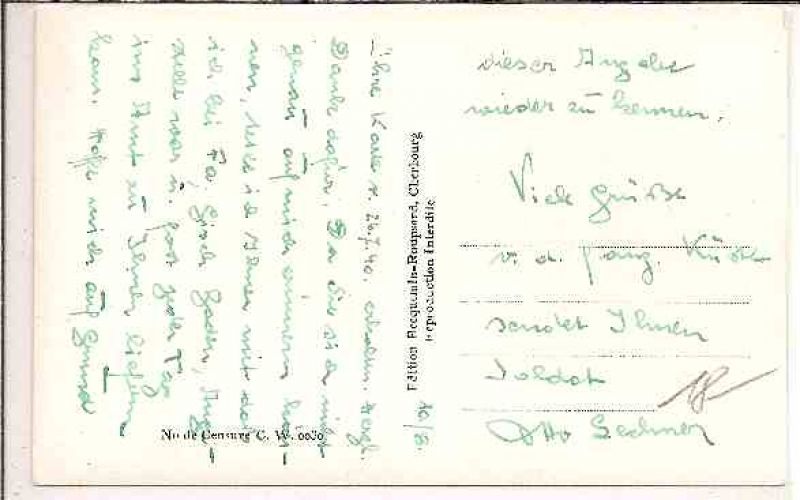 Ihre Karte v. 26.7.40. erhalten. Herzl.
Dank dafür. Da Sie sich nicht
genau auf mich erinnern kön-
nen, teile ich Ihnen mit daß
ich bei Fa.
war u. fast jeder Tag
ins Amt zu Ihnen liefern
kam. Hoffe mich auf Grund
Edition Becquemin-Roupsard, Cherbourg
Reproduction Interdite
10/8.
No de Censure C. W. 0030
dieser Angabe
wieder zu kennen.
Viele Grüße
v. d. franz. Küste
sendet Ihnen
Soldat
Otto Lechner